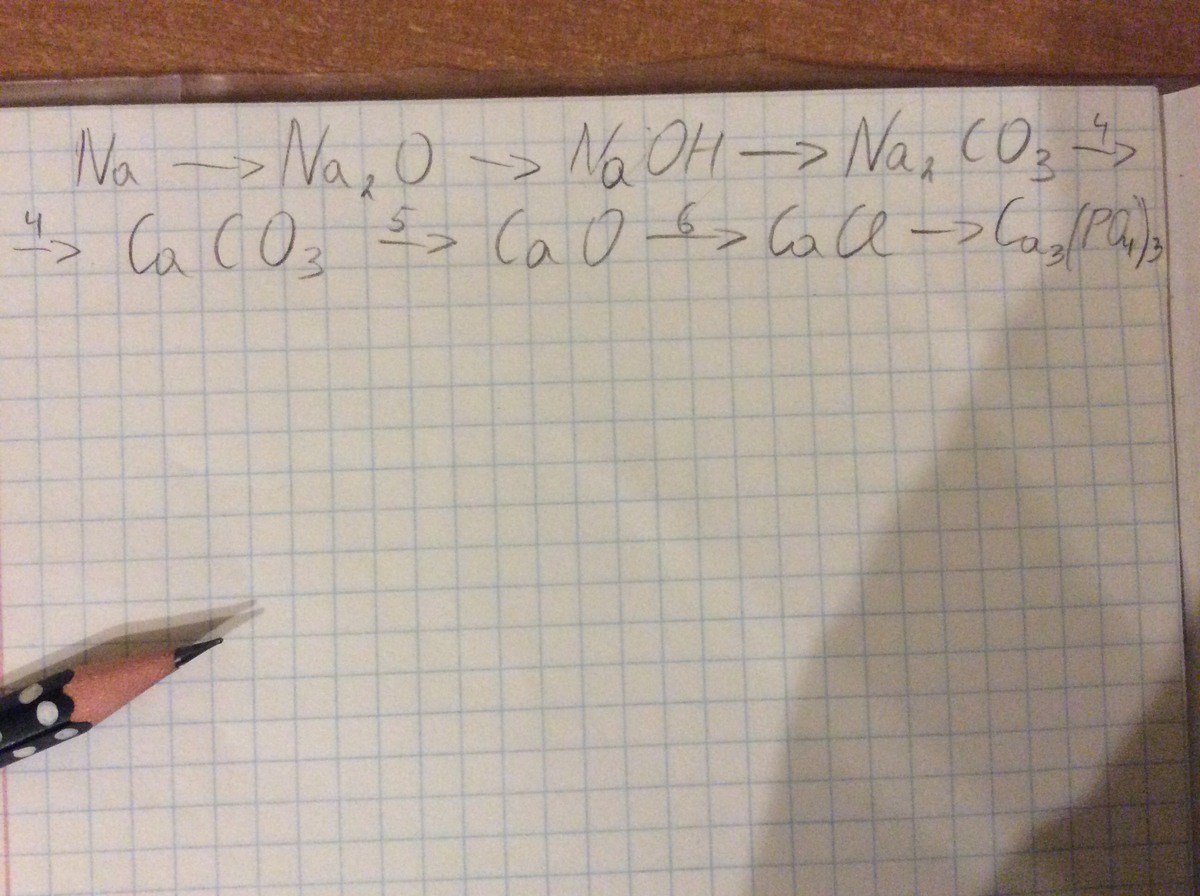 Na → Na₂O → NaOH → Na₂CO₃ 4→
4→ CaCO₃ 5→ CaO 6→ CaCl → Ca₃(PO₄)₃